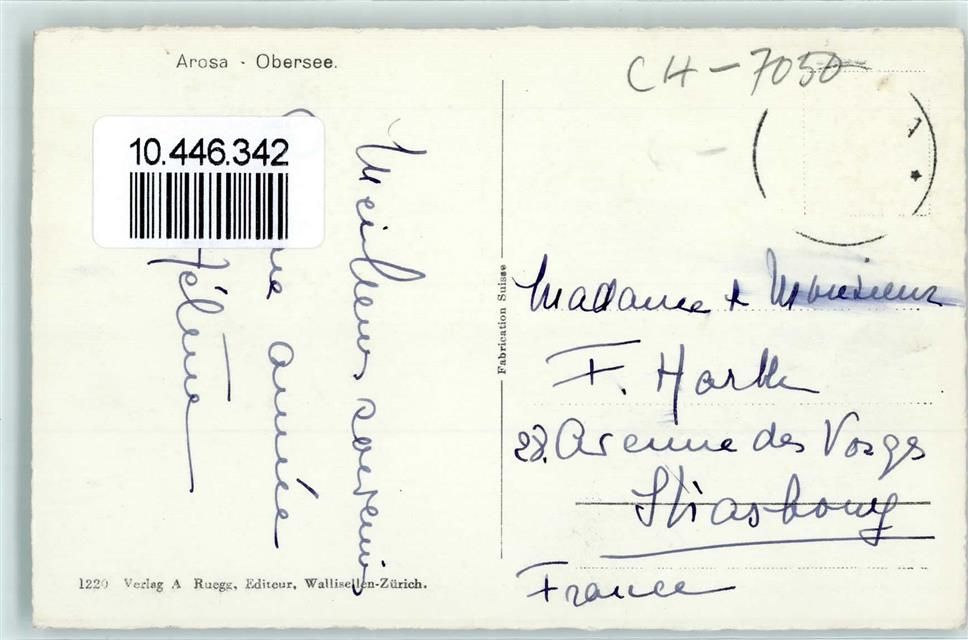 Arosa - Obersee.
CH-7050
10.446.342
Meilleurs souvenirs
année
Hélène
Fabrication Suisse
Madame & Monsieur
F.
28. Avenue des Vosges
Strasbourg
France
1220 Verlag A Ruegg, Editeur, Wallisellen-Zürich.